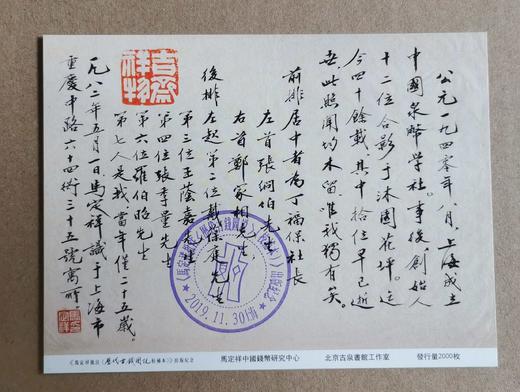 公元一九四零年八月，上海成立
中國泉幣學社。事後，創始人
十二位合影于沐園花坪。迄
今四十餘載，其中拾位早已逝
去，此照聞均未留，唯我獨有矣。
前排居中者為丁福保社長
左首張絅伯先生
右首鄭家相先生
後排左起第二位戴葆庭先生
第三位王蔭嘉先生
第四位張季量先生
第六位羅伯昭先生
第七人是我，當年僅二十五歲。
一九八二年五月一日馬定祥識于上海市
重慶中路六十四街三十五號寓所
吉齋祥物
2019.11.30
《馬定祥批注〈歷代古錢圖說〉拾補本》出版紀念
馬定祥中國錢幣研究中心
北京古泉書館工作室
發行量2000枚